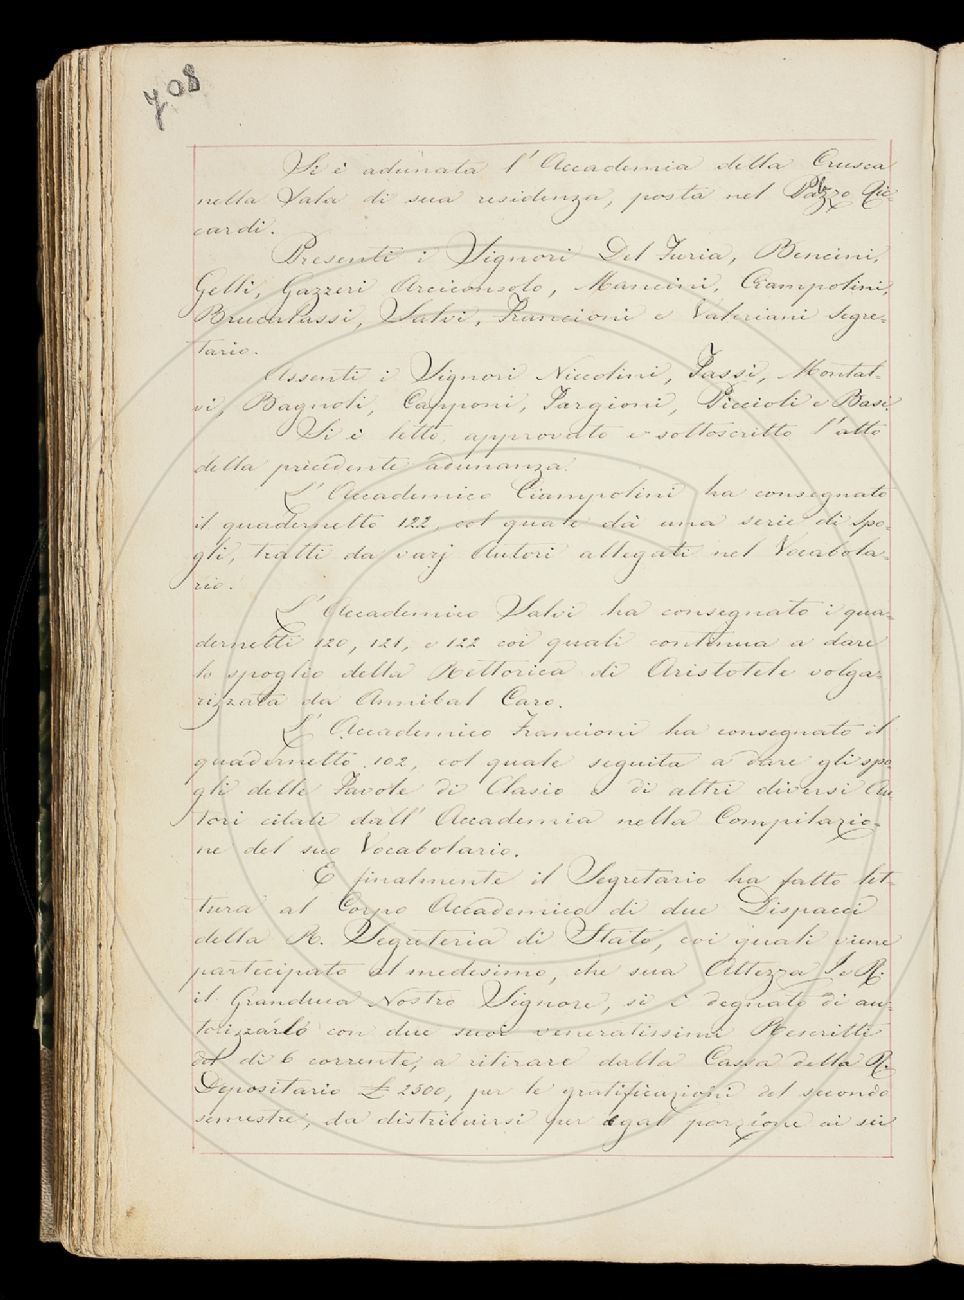 708
Si è adunata l'Accademia della Crusca
nella Sala di sua residenza, posta nel Palazzo Ric-
cardi.
Presenti i Signori Del Furia, Bencini,
Gelli, Gazzeri Arciconsolo, Mancini, Ciampolini,
Brucalassi, Salvi, Francioni e Valeriani Segre-
tario.
Assenti i Signori Niccolini, Tassi, Montal-
vi, Bagnoli, Capponi, Targioni, Piccioli e Basi.
Si è letto, approvato e sottoscritto l'atto
della precedente adunanza.
L'Accademico Ciampolini ha consegnato
il quadernetto 122, col quale dà una serie di Spo-
gli, tratti da varj Autori allegati nel Vocabola-
rio.
L'Accademico Salvi ha consegnato i qua-
dernetti 120, 121, e 122 coi quali continua a dare
lo spoglio della Rettorica di Aristotele volga-
rizzata da Annibal Caro.
L'Accademico Francioni ha consegnato il
quadernetto 102, col quale seguita a dare gli spo
gli delle Favole di Clasio e di altri diversi Au
tori citati dall'Accademia nella Compilazio-
ne del suo Vocabolario.
E finalmente il Segretario ha fatto let-
tura al Corpo Accademico di due Dispacci
della R. Segreteria di Stato, coi quali viene
partecipato al medesimo, che sua Altezza I. e R.
il Granduca Nostro Signore, si è degnato di au-
torizzarlo con due suoi veneratissimi Rescritti
del dì 6 corrente, a ritirare dalla Cassa della R.
Depositario £ 2500, per le gratificazioni del secondo
semestre, da distribuirsi per egual porzione ai sei